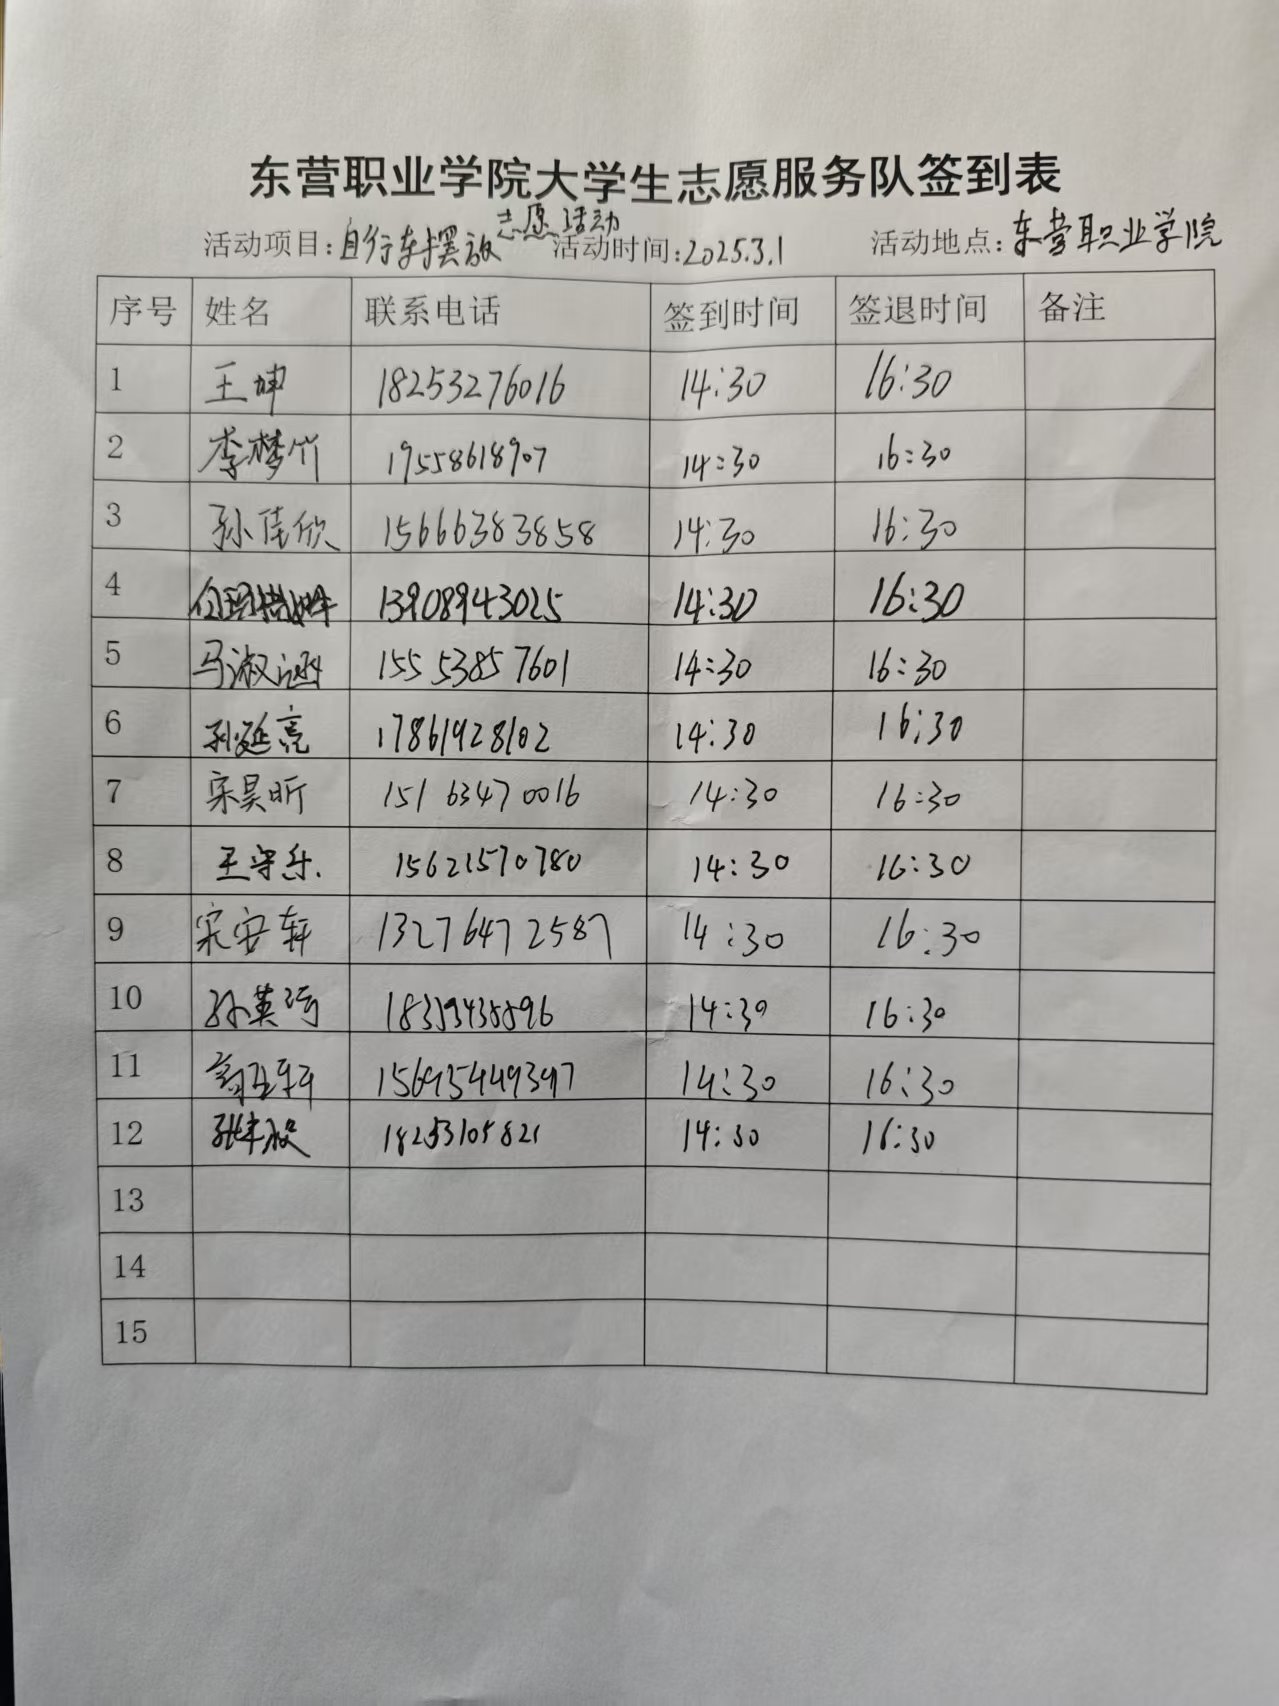 东营职业学院大学生志愿服务队签到表
活动项目:自行车摆放志愿活动 活动时间:2025.3.1 活动地点:东营职业学院
序号 姓名 联系电话 签到时间 签退时间 备注
1 王坤 18253276016 14:30 16:30
2 李梦竹 19558618907 14:30 16:30
3 孙佳欣 15666383858 14:30 16:30
4 13908943025 14:30 16:30
5 马淑涵 15553857601 14:30 16:30
6 孙延亮 17861928102 14:30 16:30
7 宋昊昕 15163470016 14:30 16:30
8 王守乐 15621570780 14:30 16:30
9 宋安轩 13276472587 14:30 16:30
10 孙英琦 14:30 16:30
11 14:30 16:30
12 18253105821 14:30 16:30
13
14
15